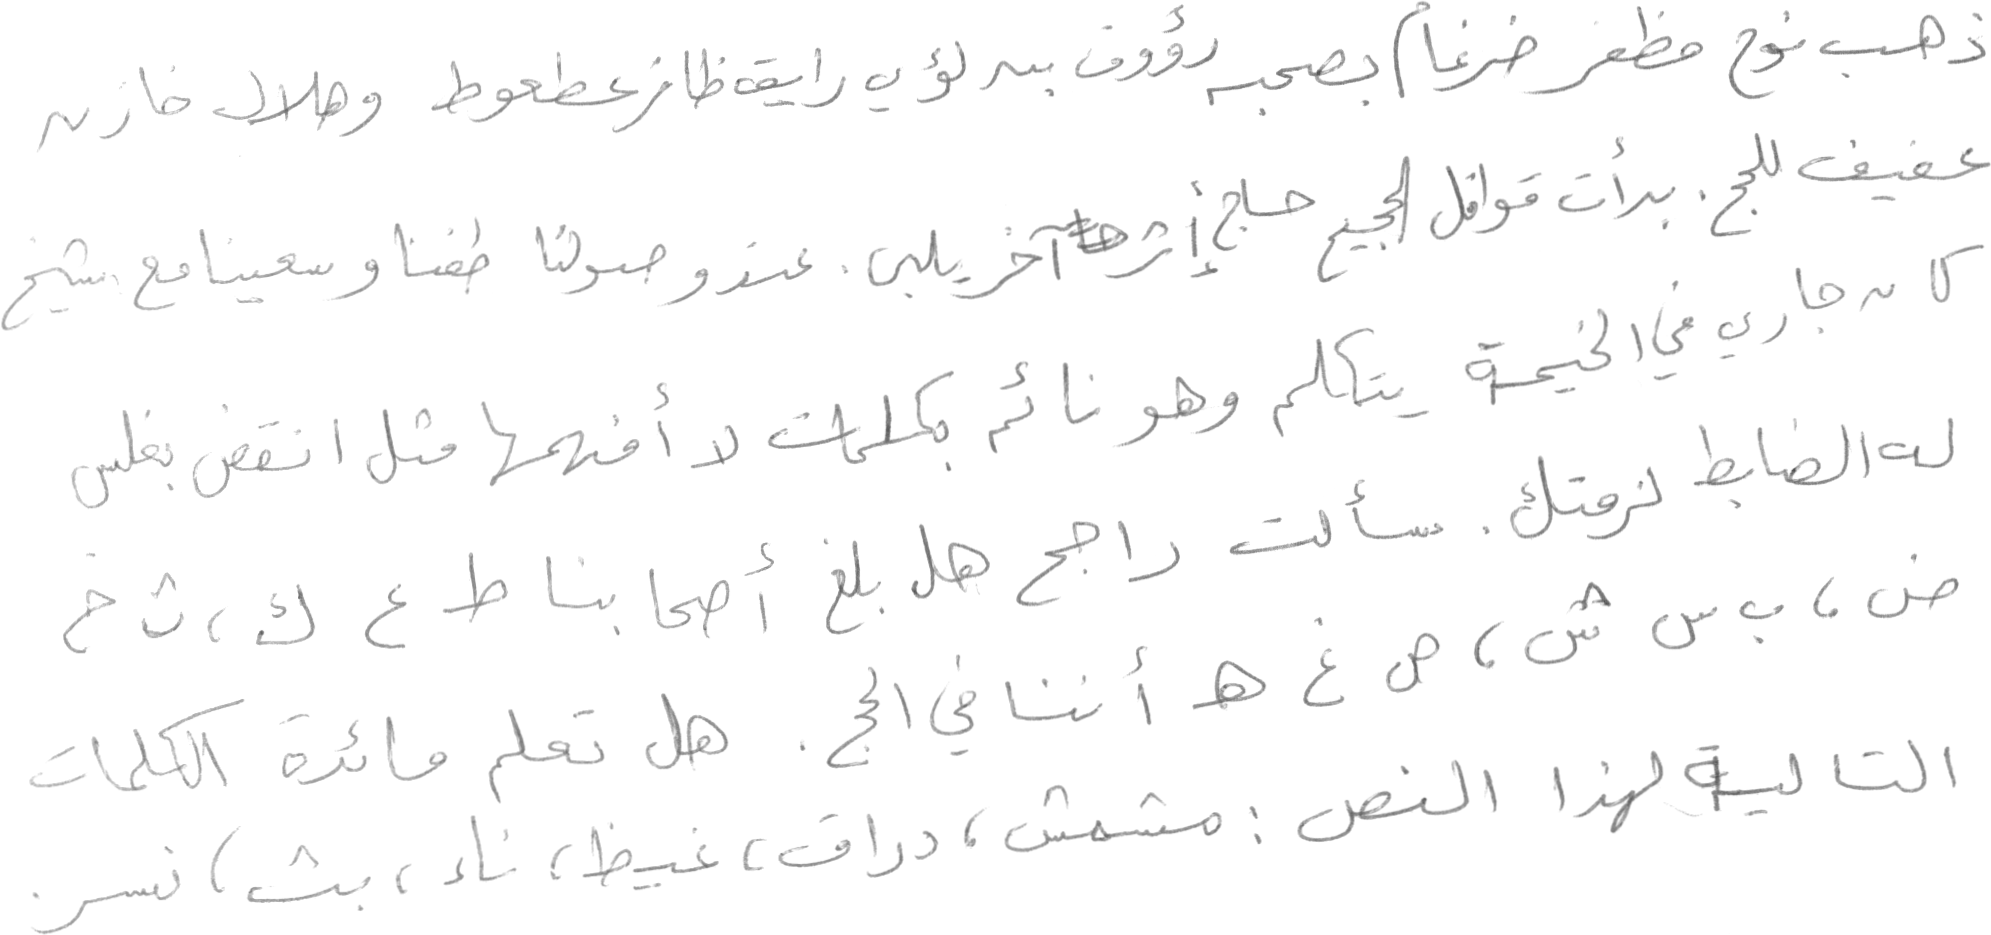 ذهب نوح مظفر ضرغام بصحبه رؤوف بن لؤي رايقه ظافر عطعوط وهلال خازن
عفيف للحج. بدأت قوافل الحجيج حاج إثر آخر يلبي. عند وصولنا طفنا وسعينا مع شيخ
كان جاري في الخيمة يتكلم وهو نائم بكلمات لا أفهمها مثل انقض بغلس
له الضابط لزمتك. سألت راجح هل بلغ أصحابنا ط ع ك، ث خ
ض، ب س ش، ص غ هـ أننا في الحج. هل تعلم مائدة الكلمات
التالية لهذا النص: مشمش، دراق، غيظ، ناء، بث، نسر.